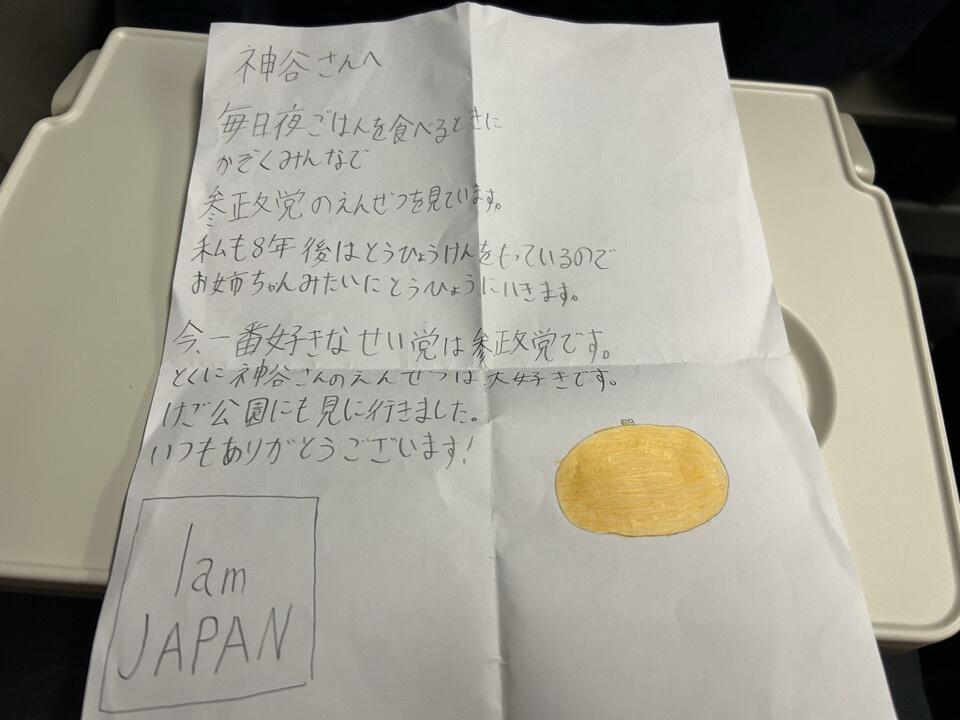 神谷さんへ
毎日夜ごはんを食べるときに
かぞくみんなで
参正政党のえんぜつを見ています。
私も8年後はとうひょうけんをもっているので
お姉ちゃんみたいにとうひょうにいきます。
今、一番好きなせい党は参政党です。
とくに神谷さんのえんぜつは大好きです。
けご公園にも見に行きました。
いつもありがとうございます!
I am
JAPAN